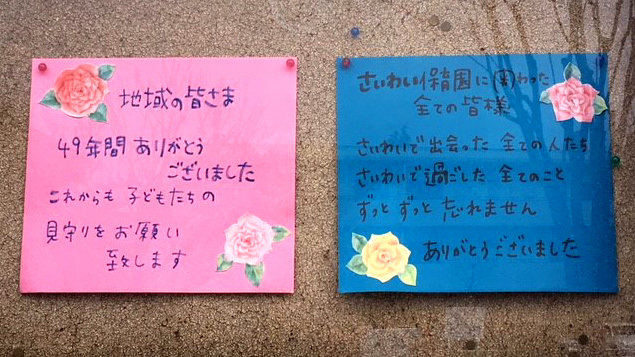 地域の皆さま
49年間 ありがとう
ございました
これからも 子どもたちの
見守りを お願い
致します
さいわい保育園に関わった
全ての皆様
さいわいで 出会った 全ての人たち
さいわいで 過ごした 全てのこと
ずっと ずっと 忘れません
ありがとうございました